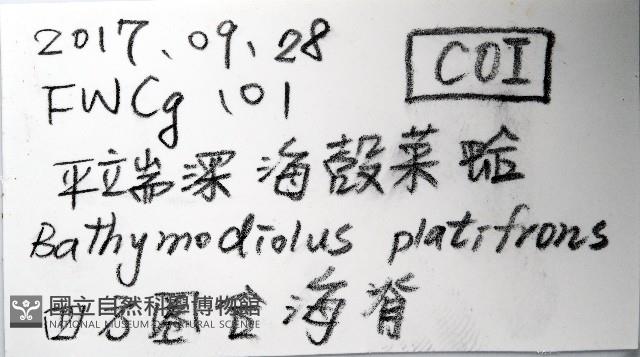 2017.09.28
COI
FWCg 101
平端深海殼菜蛤
Bathymodiolus platifrons
四方圈合海脊
國立自然科學博物館
NATIONAL MUSEUM OF NATURAL SCIENCE